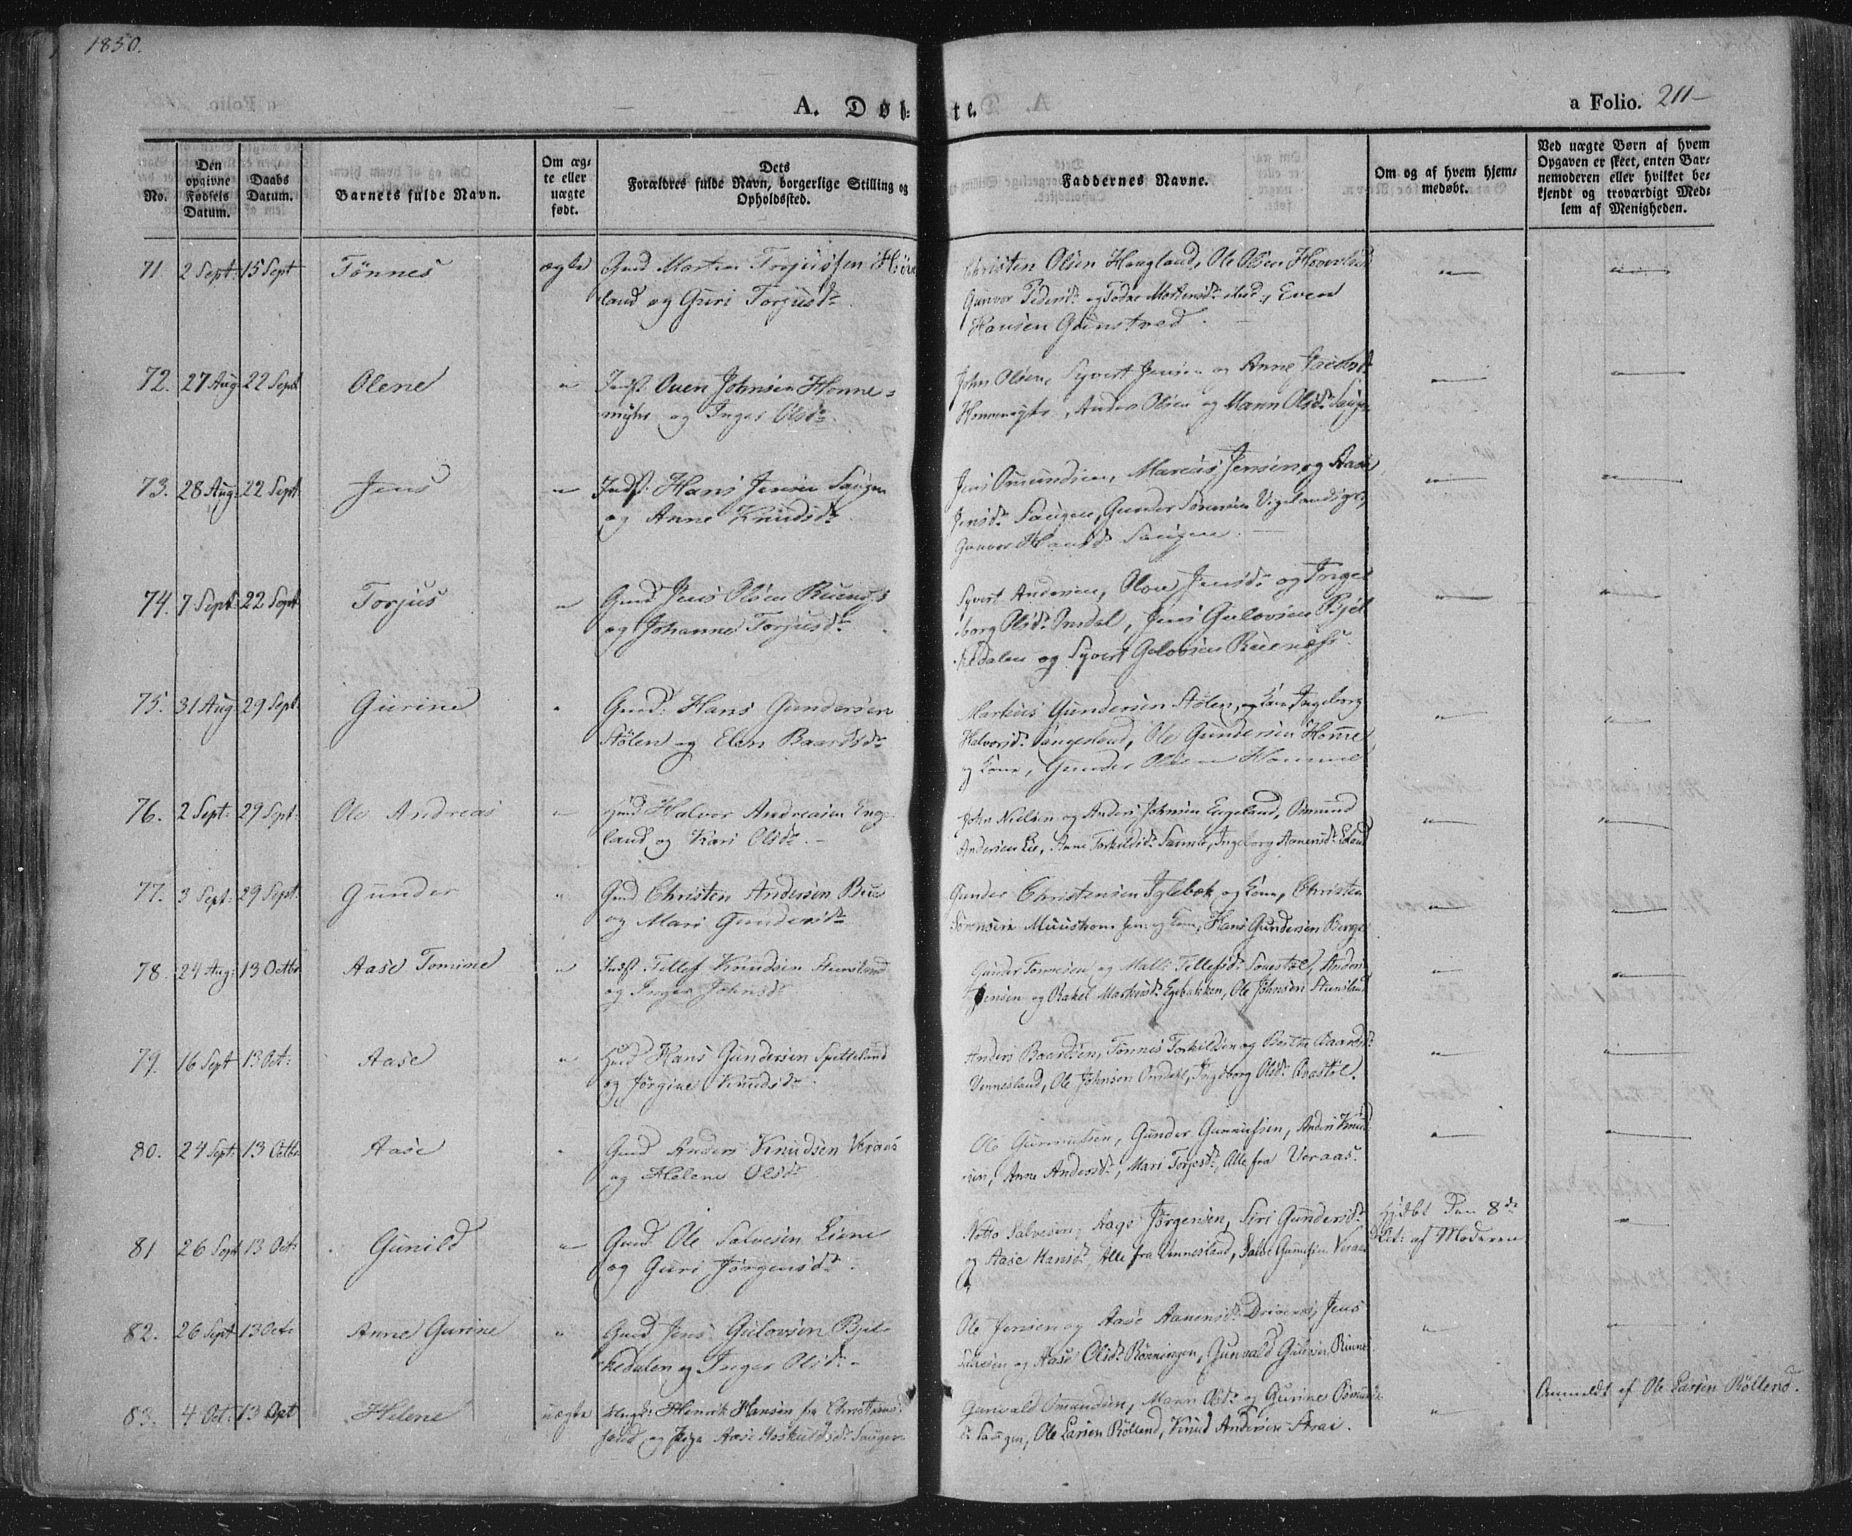 1850.
A. Døbte.
a Folio. 211
No.
Den opgivne Fødsels Datum.
Daabs Datum.
Barnets fulde Navn.
Om ægte eller uægte født.
Dets Forældres fulde Navn, borgerlige Stilling og Opholdssted.
Faddernes Navne.
Om og af hvem hjemmedøbt.
Ved uægte Børn af hvem Opgaven er skeet, enten Barnemoderen eller hvilket bekjendt og troværdigt Medlem af Menigheden.
71. 2 Sept: 15 Sept Tønnes ægte Gmd Morten Torjussen
land og Guri Torjusd:
Christen Olsen Haugland, Ole Olsen
Gunvor Pedersd: og Todne Mortensd: ibid:, Even
Hansen Gunstved.
72. 27 Aug 22 Sept Olene " Indst. Ouen Johnsen Honne-
myhr og Inger Olsd:
John Olsen, Syvert Jensen og Anne
Honnemyhr, Anders Olsen og Maren Olsd: Saugen
73. 28 Aug: 22 Sept Jens " Indst: Hans Jensen Saugen
og Anne Knudsd:
Jens Omundsen, Marcus Jensen og Aase
Jensd: Saugen, Gunder Sørensen Vigelandsige,
Gunvor Hansd: Saugen.
74. 7 Sept: 22 Sept Torjus " Gmd Jens Olsen Ruenes
og Johanne Torjusd:
Syvert Andersen, Olou Jensd: og Inge-
borg Olsd: Omdal, Jens Gulovsen Bjel-
kedalen og Syvert Gulovsen Ruenæss.
75. 31 Aug 29 Sept. Gurine " Gmd: Hans Gundersen
Stølen og Elen Baardsd:
Markus Gundersen Stølen, og Kone, Ingeborg
Halvorsd: Vangesland, Ole Gundersen Homme
og Kone, Gunder Olsen Homme
76. 2 Sept: 29 Sept: Ole Andreas " Gmd Halvor Andreasen Eng-
land og Kari Olsd:
John Nielsen og Anders Johnsen Eegeland, Omund
Andersen Lie, Anne Torkildsd:, Ingeborg Aanensd:
77. 3 Sept: 29 Sept: Gunder " Gmd Christen Andersen Bue
og Mari Gundersd:
Gunder Christensen Iglebæk og Kone, Christen
Sørensen Muustrom sen: og Kone, Hans Gundersen Berge
78. 24 Aug: 13 Octbr Aase Tomine " Indst: Tellef Knudsen Stensland
og Inger Johnsd:
Gunder Tønnesen og Malli Tellefsd:, Anders
Jensen og Rakel Markusd: Egebakken, Ole Johnsen Stensland
79. 16 Sept 13 Oct: Aase " Gmd Hans Gundersen Spitteland
og Jørgine Knudsd:
Anders Baardsen, Tønnes Torkildsen og Berthe Baardsd:
Vennesland, Ole Johnsen Omdal, Ingeborg Olsd: Braastøl.
80. 24 Sept: 13 Octbr Aase " Gmd Anders Knudsen Veraas
og Helene Olsd:
Ole Gunnufsen, Gunder Gunnufsen, Anders Knud-
sen, Anne Andersd:, Mari Torjesd:, Alle fra Veraas.
81 26 Sept 13 Oct: Gunild " Gmd Ole Salvesen Liene
og Guri Jørgensd:
Notto Salvesen, Aage Jørgensen, Siri Gundersd:
og Aase Hansd:, Alle fra Vennesland, Salve Gunufsen Veraas
Hjdbt den 8de
Oct: af Moderen
82. 26 Sept 13 Oct: Anne Gurine " Gmd Jens Gulovsen Bjel-
kedalen og Inger Olsd:
Ole Jensen og Aase Aanensd: Drivenes, Jens
Salvesen og Aase Olsd: Rønningen, Gunvald Gulovsen
83. 4 Oct: 13 Oct Helene uægte Ungk: Henrik Hansen fra Christians-
sand og Pige Aase Hoskuldsd: Saugen
Gunvald Omundsen, Maren Olsd: og Gurine Omunds-
d: Saugen, Ole Larsen Røllend, Knud Andersen Aræ.
Anmeldt af Ole Larsen Røllend.